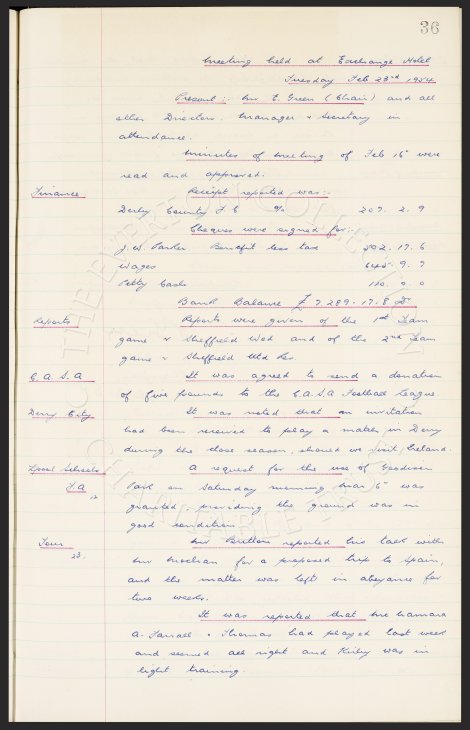 36
Meeting held at Exchange Hotel
Tuesday Feb 23rd 1954
Present:- Mr E. Green (Chair) and all
other Directors. Manager & Secretary in
attendance.
Minutes of meeting of Feb 16 were
read and approved.
Finance. Receipt reported was:-
Derby County F.C. 207. 2. 9
Cheques were signed for:-
J. W. Parker Benefit less tax 17. 6
Wages 9. 7
Petty Cash
Bank Balance £7.289.17.8
Reports Reports were given of the 1st Team
game v Sheffield Wed and of the 2nd Team
game v Sheffield Utd Res.
It was agreed to send a donation
of five pounds to the Football League.
Derry City It was noted that an invitation
had been received to play a match in Derry
during the close season, should we visit Ireland.
Schools A request for the use of Goodison
F.A. Park on Saturday morning Mar 6 was
granted, providing the ground was in
good condition.
Tour Mr Britton reported his talk with
23. Mr for a proposed trip to Spain,
and the matter was left in abeyance for
two weeks.
It was reported that
A. Farrall & Thomas had played last week
and seemed all right and Kirby was in
light training.
THE EVERTON COLLECTION
CHARITABLE TRUST